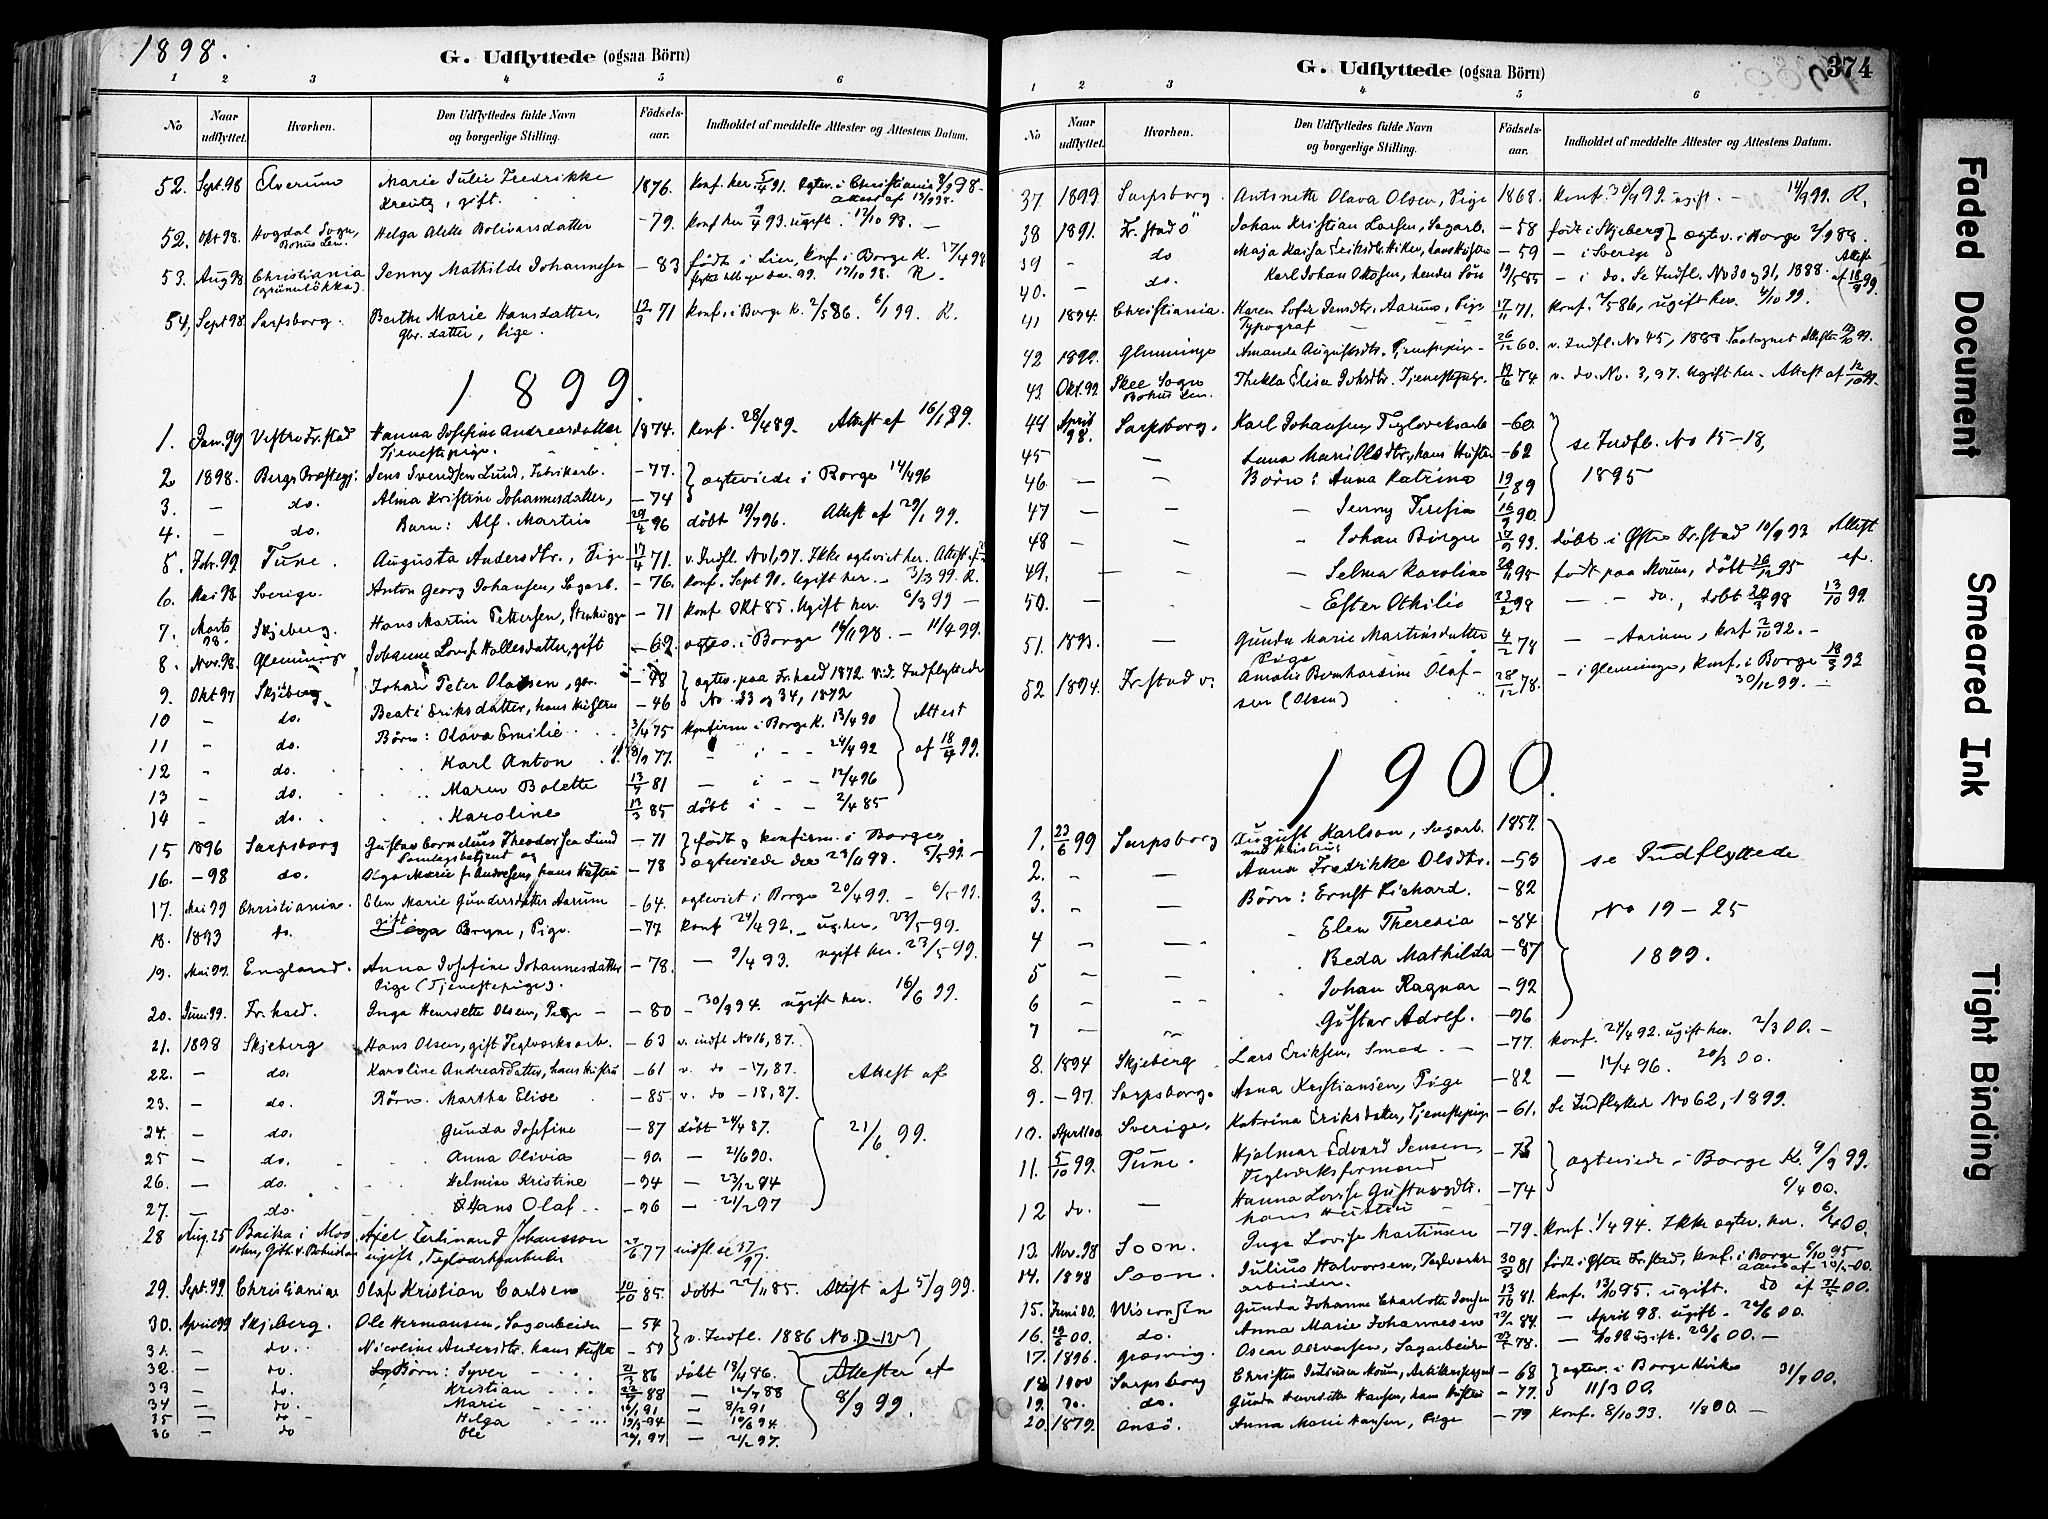 1898.
G. Udflyttede (ogsaa Börn)
1 2 3 4 5 6
No Naar udflyttet. Hvorhen. Den Udflyttedes fulde Navn og borgerlige Stilling. Födsels-aar. Indholdet af meddelte Attester og Attestens Datum.
52. Sept. 98 Elverum Marie Julie Fredrikke 1876. Konf. her 5/4 91. Egtev. i Christiania
Kreutz, gift Attest af 13/9 98.
52. Okt 98. Hogdal Sogn, Helga Alette Bolivarsdatter -79. Konf her 9/4 93. ugift. 12/10 98. -
Bohus Len.
53. Aug 98 Christiania Jenny Mathilde Johannesen -83 født i Lier, Konf. i Borge K. 17/4 98
(Grünnerløkka). 17/10 98. R.
54. Sept 98 Sarpsborg. Berthe Marie Hansdatter, 13/3 71 Konf. i Borge K. 2/5 86. 6/1 99. R.
Gbr. datter, Pige.
1899.
1. Jan. 99 Vestre Fr.stad Hanna Josefine Andreasdatter 1874. Konf. 28/4 89. Attest af 16/1 99.
Tjenestepige.
2 1898. Bergs Præstegj. Jens Svendsen Lund, Fabrikarb. -77. } egteviede i Borge 14/4 96
3. - do. Alma Kristine Johannesdatter, -74
4. - do. Barn: Alf Martin 29/4 96 døbt 19/7 96. Attest af 29/1 99.
5. Febr. 99 Tune. Augusta Andersdtr., Pige 17/4 71. v. Indfl. No 1, 97. Ikke egteviet her. Attest af
6. Mai 98. Sverige. Anton Georg Johansen, Sagarb. -76. Konf. Sept 90. Ugift her. - 3/3 99. R.
7. Marts 98. Skjeberg. Hans Martin Pettersen, Stenhugger -71 Konf Okt 85. Ugift her. 6/3 99 -
8. Nov. 98. Glemminge Johanne Lovise Hallesdatter, gift -69. egtev. i Borge 16/11 98. - 11/4 99.
9. Okt 97 Skjeberg Johan Peter Olausen, gbr. -48 } egtev. paa Fr.hald 1872. Vid. Indflyttede
10 - do. Beate Eriksdatter, hans Hustru -46 } No 33 og 34, 1872
11 - do. Børn: Olava Emilie 3/4 75 Konfirm i Borge K. 13/4 90 Attest
12 - do. Karl Anton 77. - i - - 24/4 92 af 18/4 99.
13 - do. Maren Bolette 13/7 81 - i - - 12/4 96
14 - do. Karoline 13/3 85 døbt i - - 2/4 85
15 1896 Sarpsborg Gustav Cornelius Theodorsen Lund -71 } født & konfirm. i Borge,
16. -98 do. Olga Marie f. Andresen, hans Hustru -78 } egteviede der 23/11 98. 5/5 99. -
17. Mai 99 Christiania. Elen Marie Gundersdatter Aarum -64. egteviet i Borge 20/4 99. - 6/5 99.
gift
18. 1893 do. Bryne, Pige. -77 Konf 24/4 92. - ug. her. 23/5 99.
19. Mai 99. England. Anna Josefine Johannesdatter -78. - 9/4 93. ugift her. 23/5 99.
Pige (Tjenestepige).
20. Juni 99. Fr.hald. Inga Henriette Olsen, Pige - -80 - 30/9 94. ugift her. 16/6 99.
21. 1898 Skjeberg Hans Olsen, gift Teglværksarb. -63 v. indfl No 16, 87.
22. - do. Karoline Andreasdatter, hans Hustru -61 v. do - 17, 87. Attest af
23. - do. Børn. Martha Elise -85. v. do - 18, 87.
24. - do. Gunda Josefine -87 døbt 24/4 87. 21/6 99.
25 - do. Anna Olivia -90. - 2/6 90.
26. - do. Helmine Kristine -94 - 23/12 94
27. - do. Hans Olaf -96 - 21/2 97
28 Aug. 25 Backa i Axel Ferdinand Johansson 77 indfl
ugift, Teglværksarbeider
29. Sept. 99. Christiania Olaf Kristian Carlsen 10/10 85. døbt 22/11 85. Attest af 5/9 99.
30. April 99 Skjeberg. Ole Hermansen, Sagarbeider -54 } v. Indfl. 1886 No. 11-12
31. - do. Nicoline Andersdtr. hans Hustru -59
32. - do. Børn: Syver 21/3 86 døbt 18/4 86. Attester af
33 - do. Kristian 88 - 12/7 88 8/9 99.
34 - do. Marie 91 - 8/2 91
35 - do Helga 94 - 10/6 94
36 - do Ole 97 - 21/2 97.
374
G. Udflyttede (ogsaa Börn)
1 2 3 4 5 6
No Naar udflyttet. Hvorhen. Den Udflyttedes fulde Navn og borgerlige Stilling. Födsels-aar. Indholdet af meddelte Attester og Attestens Datum.
37 1899 Sarpsborg. Antonette Olava Olsen, Pige 1868. Konf. 30/9 99. ugift. - 14/9 99. R.
38 1891. Fr.stad Ö Johan Kristian Larsen, Sagarb. -58 født i Skjeberg } egtev. i Borge 2/9 88.
39 - do Maja Kaisa hans Hustru -59 - i Sverige
40. - do. Karl Johan Ottosen, hendes Søn 19/5 85 - i do. Se Indfl. No 30 og 31, 1888. Attest af 18/9 99.
41 1894. Christiania. Karen Sofie Jensdtr. Aarum, Pige 17/11 71. Konf. 2/5 86, ugift her. 4/10 99.
Typograf
42 1899. Glemminge Amanda Augustdtr. Tjenestepige - 26/12 60. v. Indfl. No 45, 1888
43 Okt. 99 Skee Sogn Thekla Elise Johsdtr. Tjenestepige. 19/6 74 v. do. No. 3, 97. Ugift her. Attest af 12/10 99.
Bohus Len.
44 April 98. Sarpsborg. Karl Johansen Teglverksarb -60
45 - Lena Marie Olsdtr, hans Hustru -62 se Indfl. No 15-18,
46. - - Børn: Anna Katrine 19/1 89 1895
47 - - Jenny Teresia 16/9 90.
48 - - Johan Birger 17/9 93. døbt i Østre Fr.stad 10/9 93 Attest
49. - - Selma Karoline 95 født paa Moum, døbt 26/12 95 af.
50. - - Ester Othilie 23/2 98 - - do., døbt 98 13/10 99.
51. 1893. - Gunda Marie Martinsdatter 4/2 78 - - Aarum, Konf 2/10 92. -
Pige
52 1894. Fr.stad v. Amalie Bernhardine Olaf- 28/12 78. - i Glemminge, Konf. i Borge 18/3 93
sen (Olsen) 30/12 99. -
1900.
1. 23/6 99 Sarpsborg August Karlson, Sagarb. 1857.
2. - - Anna Fredrikke Olsdtr. -53 se Indflyttede
3. - - Børn: Ernst Richard. -82
4 - - Elen Theresia -84 No 19-25
5 - - Beda Mathilda -87
6 - - Johan Ragnar -92 1899.
7 - Gustav Adolf. -96
8. 1894 Skjeberg Lars Eriksen, Smed. - -77. Konf. 24/4 92. ugift her. 2/3 00. -
9. -97. Sarpsborg. Anna Kristiansen, Pige -82 - 12/4 96. 20/3 00.
10. April 00. Sverige, Katrina Eriksdatter, Tjenestepige -61. Se Indflytted No 62, 1899.
11. 5/10 99. Tune. Hjalmar Edvard Jensen, -73 } egteviede i Borge K. 9/9 99.
Teglværksformand
12 do. - Hanna Lovise Gustavsdtr. -74 6/4 00.
hans Hustru
13. Nov. 98 Soon. Inga Lovise Martinsen -79. Konf. 1/4 94. Ikke egtev. her. 6/4 00.
14. 1898 Soon. Julius Halvorsen, Teglverks 30/8 81 født i Østre Fr.stad, Konf. i Borge 6/10 95
arbeider. Attest af
15. Juni 00. Wisconsin Gunda Johanne Charlotte Jensen 81. Konf. 13/10 95. ugift. do af 00.
16. 19/6 00. do. Anna Marie Johannesen 84. - April 98. ugift. 00.
17. 1896. Oscar Sagarbeider 78. - ugift. 00. -
18 1900 Sarpsborg Christen Moum, -68 } egtev. i Borge Kirke 31/7 00.
19. do. do. Gunda Henriette Hansen, hans Hustru -77. } 11/3 00.
20. 1879. Onsö. Anna Marie Hansen, Pige -79 Konf. 8/10 93. 1/8 00. -
Faded Document
Smeared Ink
Tight Binding